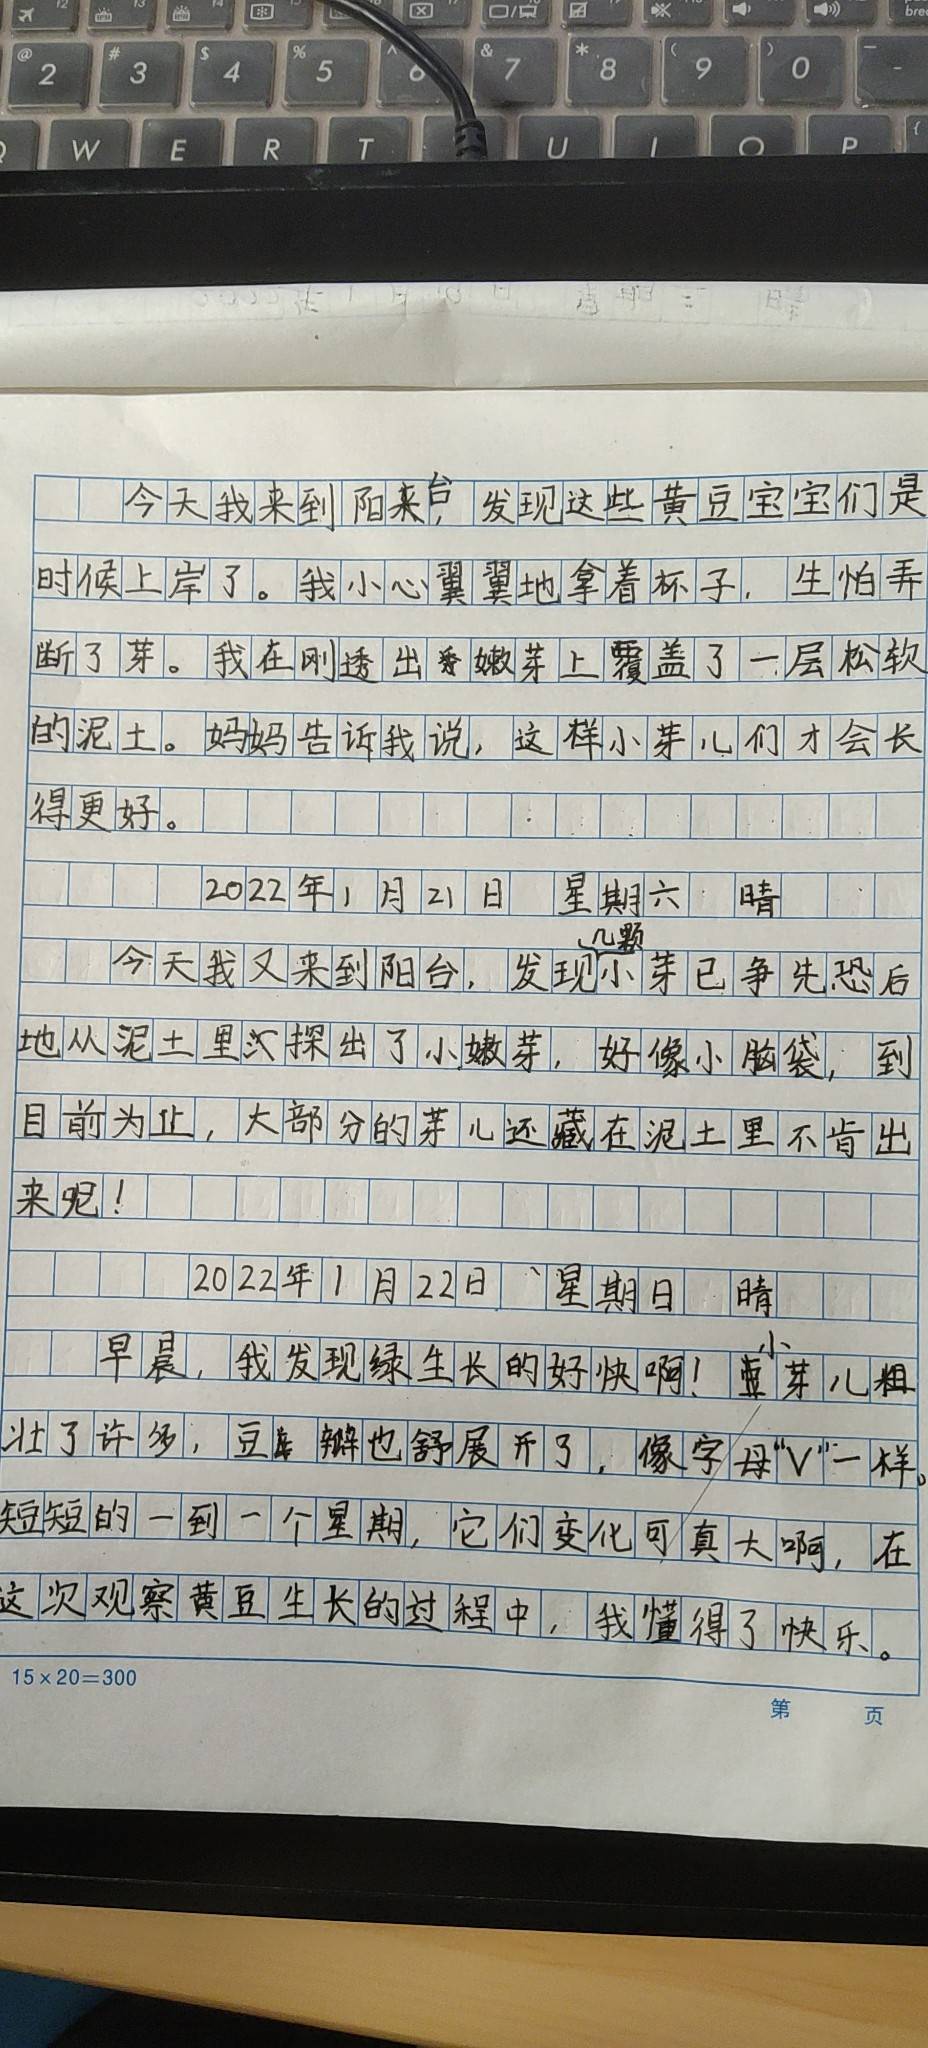 @ 2 # 3 $ 4 % 5 ^ 6 & 7 * 8 ( 9 ) 0 -
W E R T U I O P
今天我来到阳台，发现这些黄豆宝宝们是
时候上岸了。我小心翼翼地拿着杯子，生怕弄
断了芽。我在刚透出嫩芽上覆盖了一层松软
的泥土。妈妈告诉我说，这样小芽儿们才会长
得更好。
2022年1月21日 星期六 晴
今天我又来到阳台，发现几颗小芽已争先恐后
地从泥土里探出了小嫩芽，好像小脑袋，到
目前为止，大部分的芽儿还藏在泥土里不肯出
来呢！
2022年1月22日、星期日 晴
早晨，我发现绿生长的好快啊！小芽儿粗
壮了许多，豆瓣也舒展开了，像字母“V”一样。
短短的一到一个星期，它们变化可真大啊，在
这次观察黄豆生长的过程中，我懂得了快乐。
15×20=300
第 页